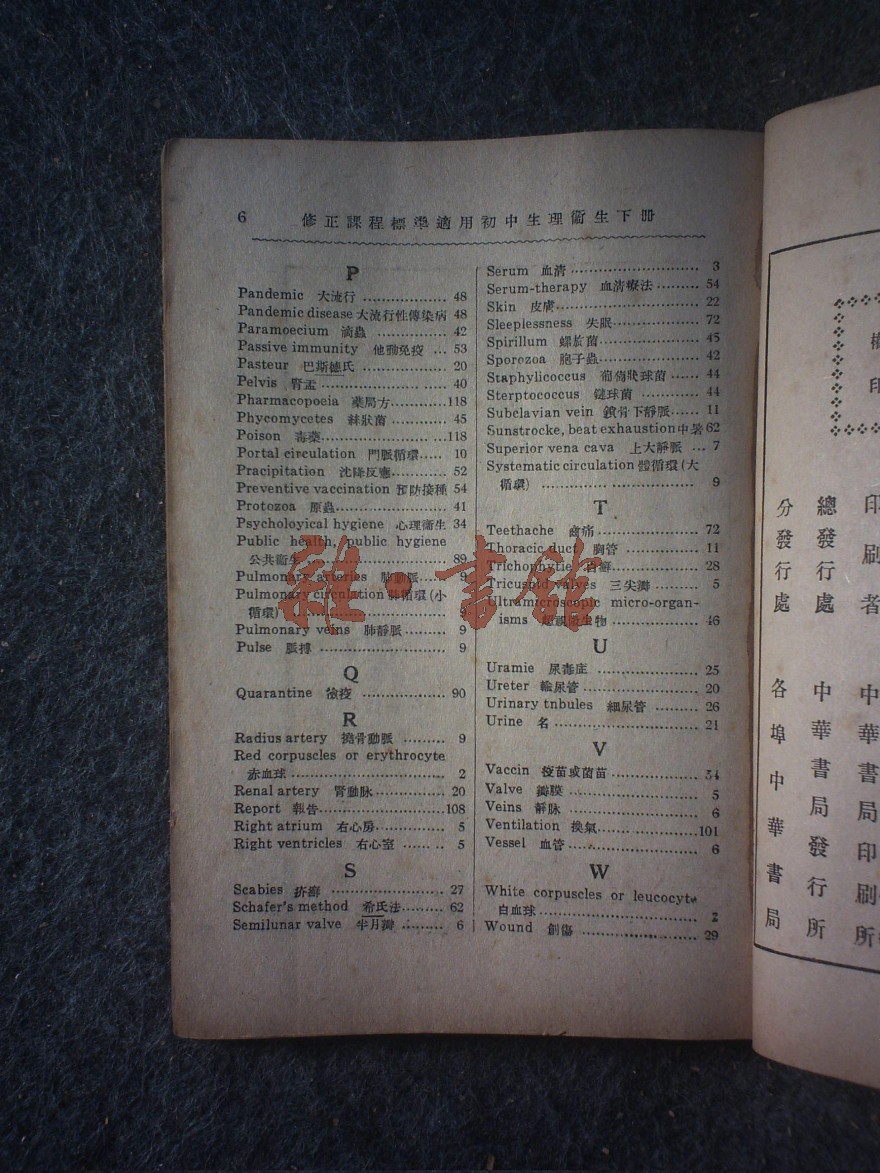 6 修正課程標準適用初中生理衞生下册
P
Pandemic 大流行 ................ 48
Pandemic disease 大流行性傳染病 48
Paramoecium 滴蟲 ............... 42
Passive immunity 他動免疫 ... 53
Pasteur 巴斯德氏 ................ 20
Pelvis 腎盂 ........................ 40
Pharmacopoeia 藥局方............118
Phycomycetes 絲狀菌 ............ 45
Poison 毒藥........................118
Portal circulation 門脈循環..... 10
Pracipitation 沈降反應............ 52
Preventive vaccination 預防接種 54
Protozoa 原蟲...................... 41
Psycholoyical hygiene 心理衞生 34
Public health, public hygiene
公共衞生 ........................ 89
Pulmonary arteries 肺動脈..... 9
Pulmonary circulation 肺循環(小
循環) ........................... 9
Pulmonary veins 肺靜脈......... 9
Pulse 脈搏 ........................ 9
Q
Quarantine 檢疫 .................. 90
R
Radius artery 撓骨動脈 ......... 9
Red corpuscles or erythrocyte
赤血球 ........................... 2
Renal artery 腎動脉............... 20
Report 報告........................108
Right atrium 右心房............... 5
Right ventricles 右心室 ...... .. 5
S
Scabies 疥癬 ..................... 27
Schafer's method 希氏法......... 62
Semilunar valve 半月瓣 ......... 6
Serum 血清 ........................ 3
Serum-therapy 血清療法......... 54
Skin 皮膚........................... 22
Sleeplessness 失眠............... 72
Spirillum 螺旋菌.................. 45
Sporezoa 胞子蟲.................. 42
Staphylicoccus 葡萄狀球菌 ...... 44
Sterptococcus 鏈球菌 ............ 44
Subclavian vein 鎖骨下靜脈...... 11
Sunstrocke, beat exhaustion中暑62
Superior vena cava 上大靜脈 ... 7
Systematic circulation 體循環(大
循環) ........................... 9
T
Teethache 齒痛..................... 72
Thoracic duct 胸管 ............... 11
Trichophytie 白癬.................. 28
Tricuspid valves 三尖瓣 ......... 5
Ultramicroscopic micro-organ-
isms 超視微生物............... 46
U
Uramie 尿毒症 .................. 25
Ureter 輸尿管..................... 20
Urinary tnbules 細尿管 ......... 26
Urine 名........................... 21
V
Vaccin 疫苗或菌苗.................. 54
Valve 瓣膜........................ 5
Veins 靜脉 ........................ 6
Ventilation 換氣..................101
Vessel 血管........................ 6
W
White corpuscles or leucocyte
白血球........................... 2
Wound 創傷 ..................... 29
印刷者 中華書局印刷所
總發行處 中華書局發行所
分發行處 各埠中華書局